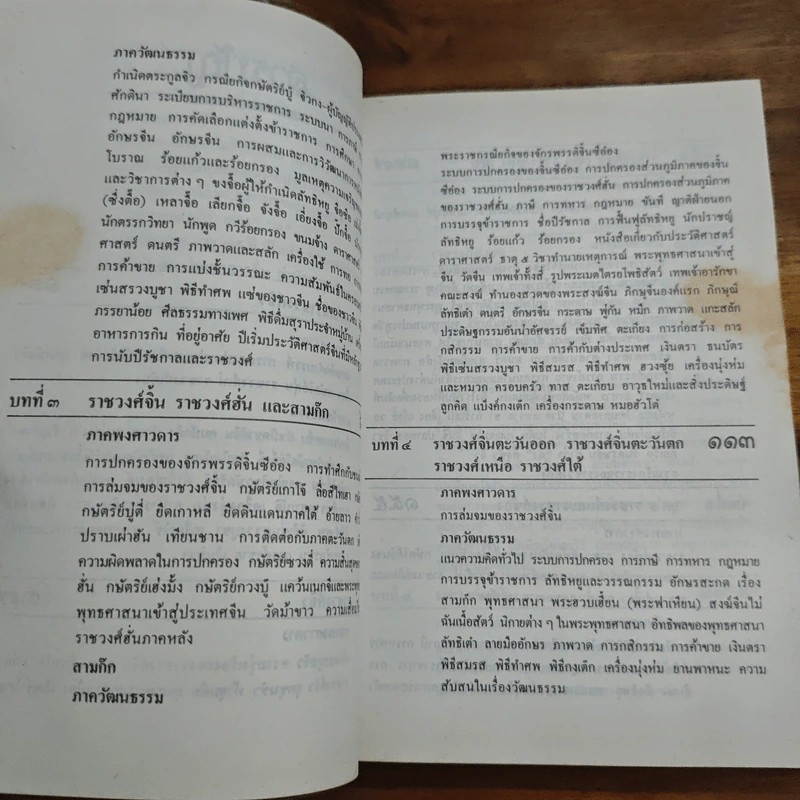 ภาควัฒนธรรม
กำเนิดตระกูลจิว กรณียกิจกษัตริย์บู๊ จิวกง-ผู้บัญญัติ
ศักดินา ระเบียบการบริหารราชการ ระบบนา การภาษี
กฎหมาย การคัดเลือกแต่งตั้งข้าราชการ การศึกษา
อักษรจีน อักษรจีน การผสมและการวิวัฒนาการ
โบราณ ร้อยแก้วและร้อยกรอง มูลเหตุความเจริญ
และวิชาการต่าง ๆ ขงจื้อผู้ให้กำเนิดลัทธิหยู
(ซึ่งตื้อ) เหลาจื้อ เลียกจื้อ จังจื้อ เอี่ยงจื้อ บั๊กจื้อ
นักตรรกวิทยา นักพูด กวีร้อยกรอง ขนมจ้าง ดาราศาสตร์
ศาสตร์ ดนตรี ภาพวาดและสลัก เครื่องใช้ การทหาร
การค้าขาย การแบ่งชั้นวรรณะ ความสัมพันธ์ในครอบครัว
เซ่นสรวงบูชา พิธีทำศพ แซ่ของชาวจีน ชื่อของชาวจีน
ภรรยาน้อย ศีลธรรมทางเพศ พิธีดื่มสุราประจำหมู่บ้าน
อาหารการกิน ที่อยู่อาศัย ปีเริ่มประวัติศาสตร์จีน
การนับปีรัชกาลและราชวงศ์
บทที่ ๓ ราชวงศ์จิ้น ราชวงศ์ฮั่น และสามก๊ก
ภาคพงศาวดาร
การปกครองของจักรพรรดิจิ้นซีอ๋อง การทำศึกกับ
การล่มจมของราชวงศ์จิ้น กษัตริย์เกาโจ๊ ลื่อสีไทเฮา
กษัตริย์บู่ตี่ ยึดเกาหลี ยึดดินแดนภาคใต้ อ้ายลาว
ปราบเผ่าฮัน เทียนชาน การติดต่อกับภาคตะวันตก
ความผิดพลาดในการปกครอง กษัตริย์ซวงตี่ ความสิ้นสุด
ฮั่น กษัตริย์เฮ่งมั้ง กษัตริย์กวงบู๊ แคว้นเนกจีและ
พุทธศาสนาเข้าสู่ประเทศจีน วัดม้าขาว ความเสื่อม
ราชวงศ์ฮั่นภาคหลัง
สามก๊ก
ภาควัฒนธรรม
พระราชกรณียกิจของจักรพรรดิจิ้นซีอ๋อง
ระบบการปกครองของจิ้นซีอ๋อง การปกครองส่วนภูมิภาคของจิ้น
ซีอ๋อง ระบบการปกครองของราชวงศ์ฮั่น การปกครองส่วนภูมิภาค
ของราชวงศ์ฮั่น ภาษี การทหาร กฎหมาย ขันที ญาติฝ่ายนอก
การบรรจุข้าราชการ ชื่อปีรัชกาล การฟื้นฟูลัทธิหยู นักปราชญ์
ลัทธิหยู ร้อยแก้ว ร้อยกรอง หนังสือเกี่ยวกับประวัติศาสตร์
ดาราศาสตร์ ธาตุ ๕ วิชาทำนายเหตุการณ์ พระพุทธศาสนาเข้าสู่
จีน วัดจีน เทพเจ้าทั้งสี่ รูปพระเมตไตรยโพธิสัตว์ เทพเจ้าอารักขา
คณะสงฆ์ ทำนองสวดของพระสงฆ์จีน ภิกษุจีนองค์แรก ภิกษุณี
ลัทธิเต๋า ดนตรี อักษรจีน กระดาษ พู่กัน หมึก ภาพวาด แกะสลัก
ประดิษฐกรรมอันน่าอัศจรรย์ เข็มทิศ ตะเกียง การก่อสร้าง การ
กสิกรรม การค้าขาย การค้ากับต่างประเทศ เงินตรา ธนบัตร
พิธีเซ่นสรวงบูชา พิธีสมรส พิธีทำศพ ฮวงซุ้ย เครื่องนุ่งห่ม
และหมวก ครอบครัว ทาส ตะเกียบ อาวุธใหม่และสิ่งประดิษฐ์
ลูกคิด แบ๊งค์กงเต็ก เครื่องกระดาษ หมอฮัวโต๋
บทที่ ๔ ราชวงศ์จิ้นตะวันออก ราชวงศ์จิ้นตะวันตก ๑๑๓
ราชวงศ์เหนือ ราชวงศ์ใต้
ภาคพงศาวดาร
การล่มจมของราชวงศ์จิ้น
ภาควัฒนธรรม
แนวความคิดทั่วไป ระบบการปกครอง การภาษี การทหาร กฎหมาย
การบรรจุข้าราชการ ลัทธิหยูและวรรณกรรม อักษรสะกด เรื่อง
สามก๊ก พุทธศาสนา พระฮวบเฮี้ยน (พระฟาเหียน) สงฆ์จีนไม่
ฉันเนื้อสัตว์ นิกายต่าง ๆ ในพระพุทธศาสนา อิทธิพลของพุทธศาสนา
ลัทธิเต๋า ลายมืออักษร ภาพวาด การกสิกรรม การค้าขาย เงินตรา
พิธีสมรส พิธีทำศพ พิธีกงเต็ก เครื่องนุ่งห่ม ยานพาหนะ ความ
สับสนในเรื่องวัฒนธรรม